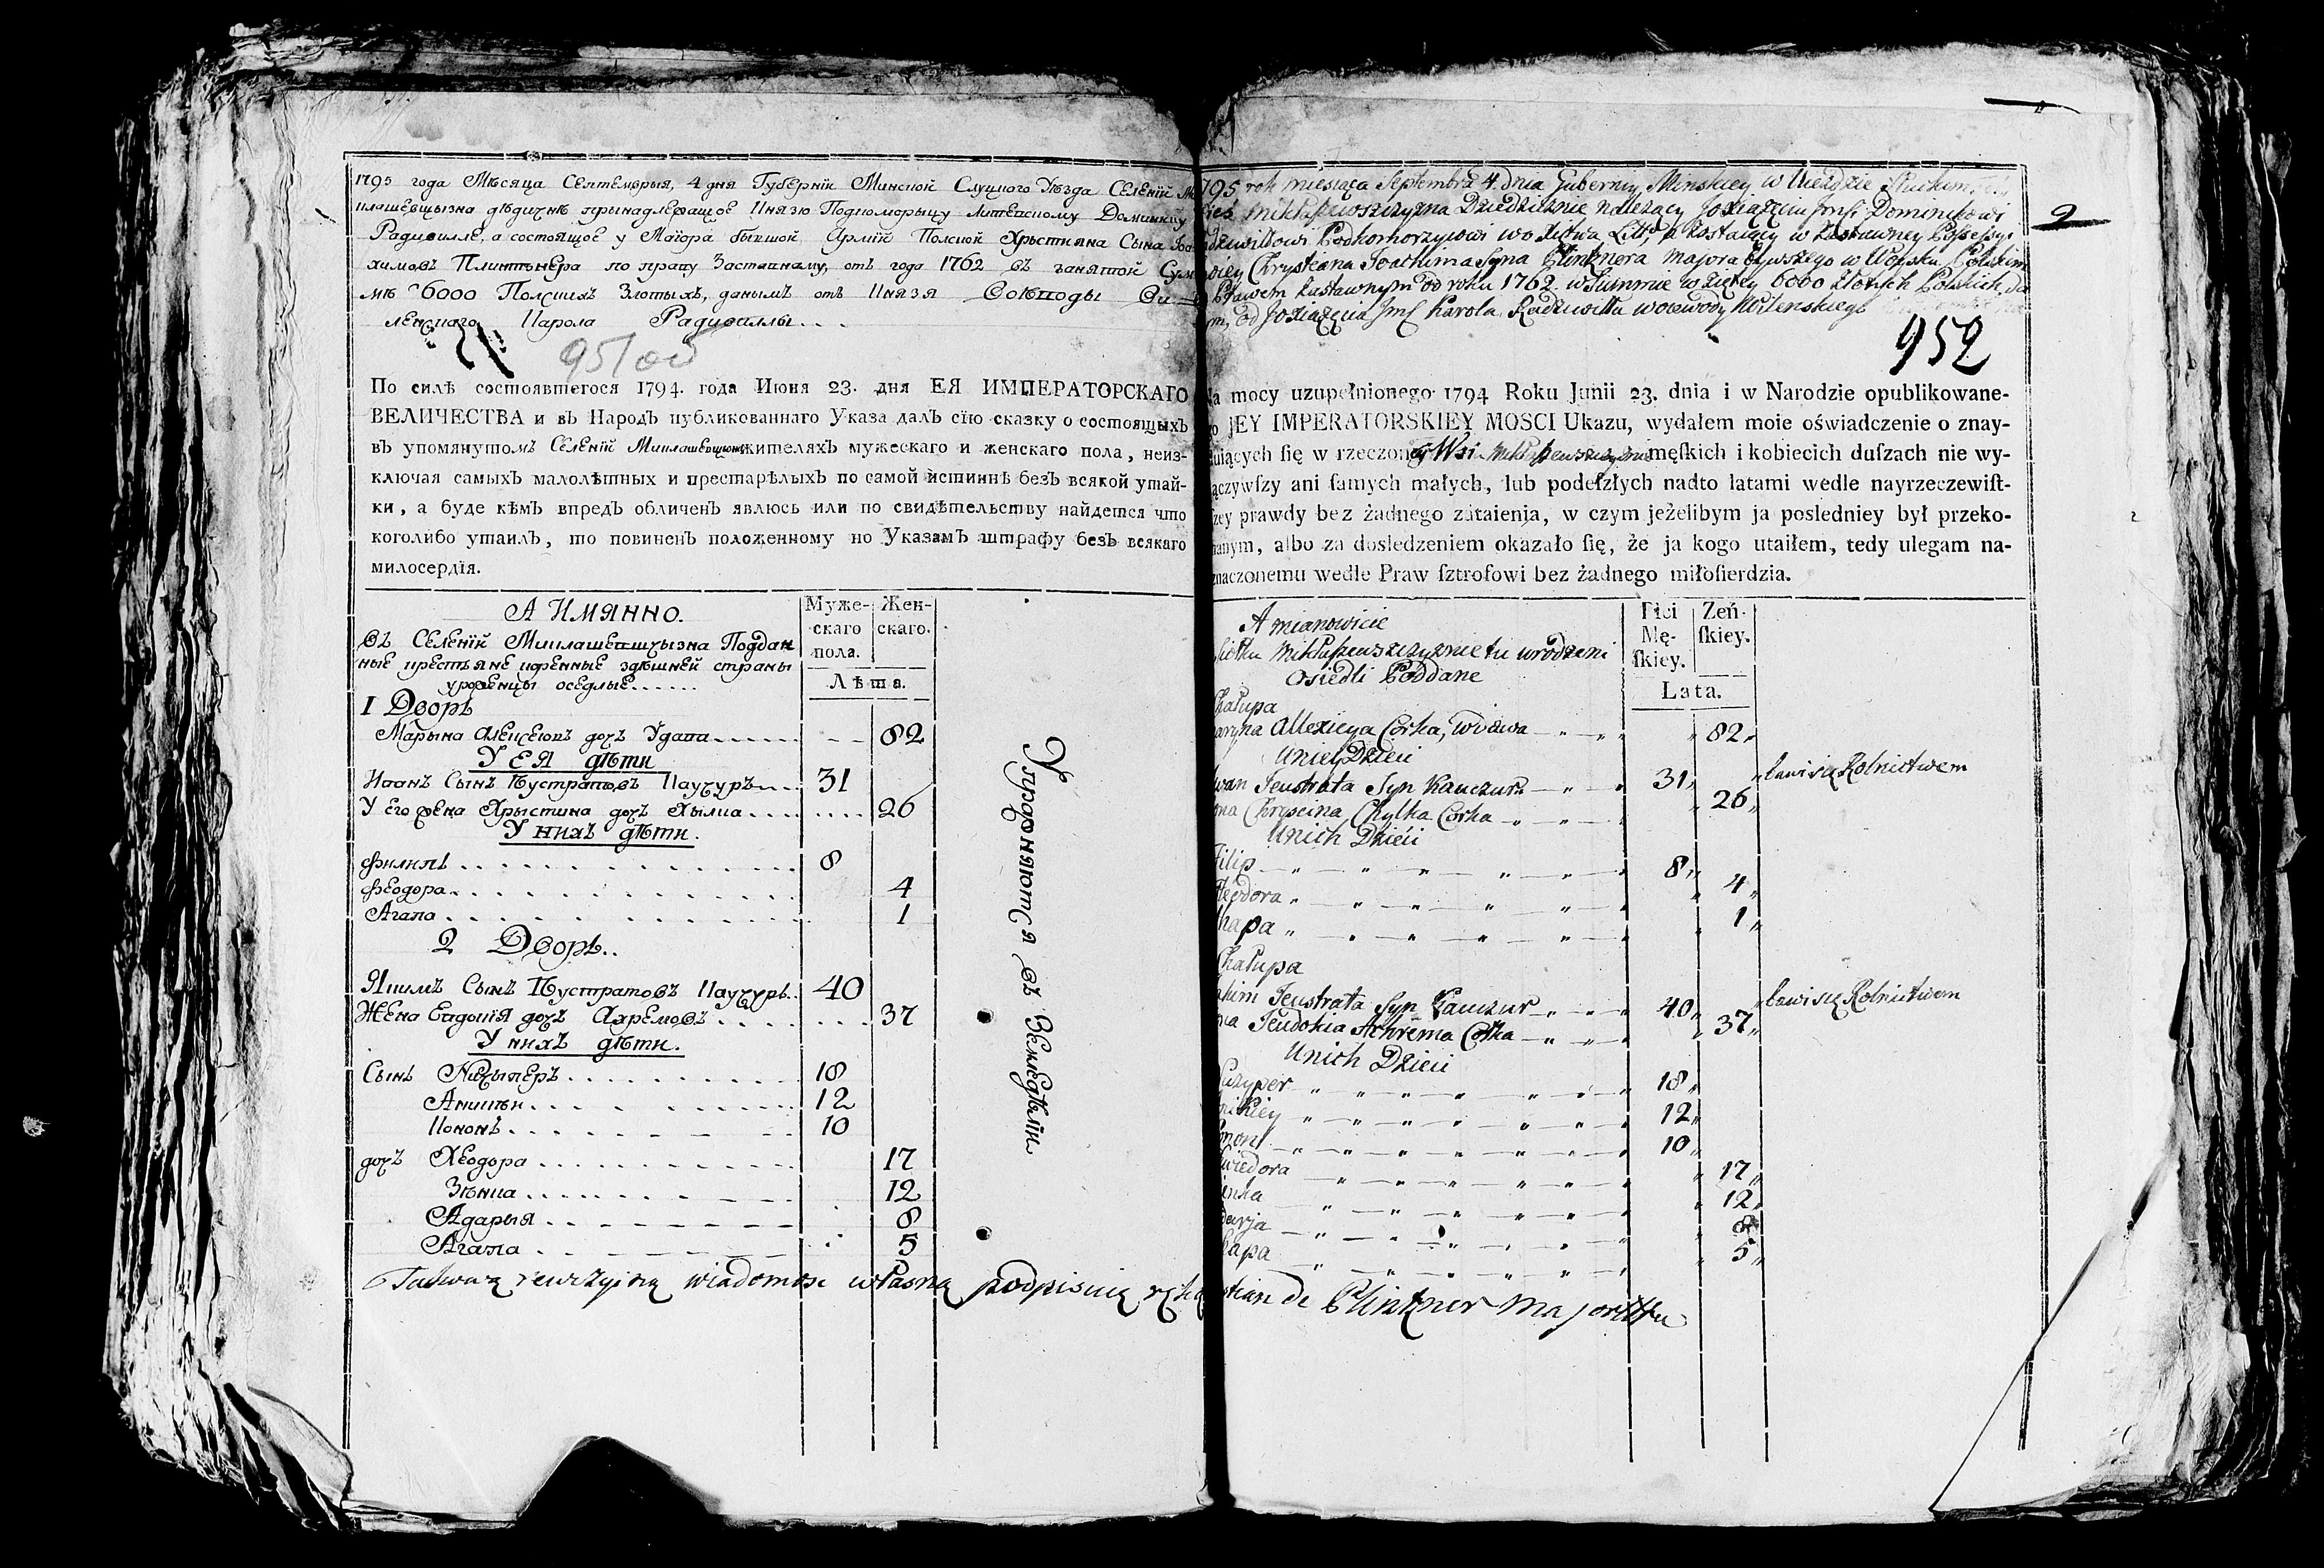 1795 года Мѣсяца Септемврыя, 4 дня Губерніи Минской Слуцкого Уѣзда Селеніи Ми
клашевщызна дѣдичнѣ принадлежащое Князю Подкоморыцу Литевскому Доминику
Радивиллѣ, а состоящое у Маіора бывшой Арміи Полской Хрыстияна Сына Іоа
химовъ Плинтзнера по праву Заставному, отъ года 1762 въ занятой Сум
мѣ 6000 Полскихъ Злотыхъ, данымъ отъ Князя Воѣводы Ви
ленскаго Кароля Радивиллы...
951 об
По силѣ состоявшегося 1794. года Июня 23. дня ЕЯ ИМПЕРАТОРСКАГО
ВЕЛИЧЕСТВА и въ Народъ публикованнаго Указа далъ сїю сказку о состоящыхъ
въ упомянутомъ Селеніи Миклашевщызнѣ жителяхъ мужескаго и женскаго пола, неиз-
ключая самыхъ малолѣтныхъ и престарѣлыхъ по самой истиннѣ безъ всякой утай-
ки, а буде кѣмъ впредъ обличенъ явлюсь или по свидѣтельству найдется что
коголибо утаилъ, то повиненъ положенному по Указамъ штрафу безъ всякаго
милосердїя.
А ИМЯННО.
Муже-
скаго
пола.
Жен-
скаго.
Лѣта.
въ Селеніи Миклашевщызна Подан
ные крестьяне коренные здѣшней страны
уроженцы оседлые......
1 Дворъ
Марына Алексеювъ дочъ Удава 82
У ЕЯ дѣти
Иванъ Сынъ Евстратовъ Каучуръ 31
У его жена Хрыстина дочъ Хылка 26
У нихъ дѣти.
Филипъ 8
Феодора 4
Агапа 1
2 Дворъ..
Якимъ Сынъ Евстратовъ Каучуръ 40
Жена Евдокия дочъ Ахремовъ 37
У нихъ дѣти.
Сынъ Ничыперъ 18
Аникѣи 12
Кононъ 10
дочъ Хеодора 17
Зѣнка 12
Адарыя 8
Агапа 5
Упражняются въ Земледѣлии
Takową rewizyiną wiadomosc własną podpisuię ręką
795 rok miesiąca Septembra 4. dnia Gubernij Minskiey w Uieździe Słuckim,
Wieś Mikłaszewszczyzna Dziedzicznie należący Joxiążęciu Jmsi Dominikowi
dziwiłłowi Podkomorzycowi wo Xiętwa Litt: a zostaiący w Zastawney Possessyi
Chrysteana Joachima Syna Plintznera Majora bywszego w Woysku Polskim
Prawem Zastawnym od roku 1762. w Summie wziętey 6000 złotych Polskich, da
m, od Joxiążęcia Jmsi Karola Radziwiłła woiewody Wileńskiego
2
952
a mocy uzupełnionego 1794 Roku Junii 23. dnia i w Narodzie opublikowane-
o JEY IMPERATORSKIEY MOSCI Ukazu, wydałem moie oświadczenie o znay-
uiących ſię w rzeczoney Wsi Mikłaszewszczyznie męſkich i kobiecich duſzach nie wy-
ączywſzy ani ſamych małych, lub podeſzłych nadto latami wedle nayrzeczewiſt-
zey prawdy bez żadnego zataienia, w czym jeżelibym ja posledniey był przeko-
nanym, albo za dosledzeniem okazało ſię, że ja kogo utaiłem, tedy ulegam na-
znaczonemu wedle Praw ſztrofowi bez żadnego miłoſierdzia.
A mianowicie
Płci
Mę-
ſkiey.
Żeń-
ſkiey.
Lata.
Siołku Mikłaszewszczyznie tu urodzeni
Osiedli Poddane
Chałupa
aryna Allexieya Corka, Wdowa 82
U niey Dzieci
wan Jeustrata Syn Kauczur 31 bawi się Rolnictwem
ona Chryscina Chyłka Corka 26
U nich Dzieci
Filip 8
Teodora 4
hapa 1
Chałupa
akim Jeustrata Syn Kauczur 40 bawi się Rolnictwem
na Jeudokia Achrema Corka 37
U nich Dzieci
iczyper 18
nikiey 12
onon 10
wiedora 17
inka 12
darja 8
hapa 5
stian de Plintzner Major